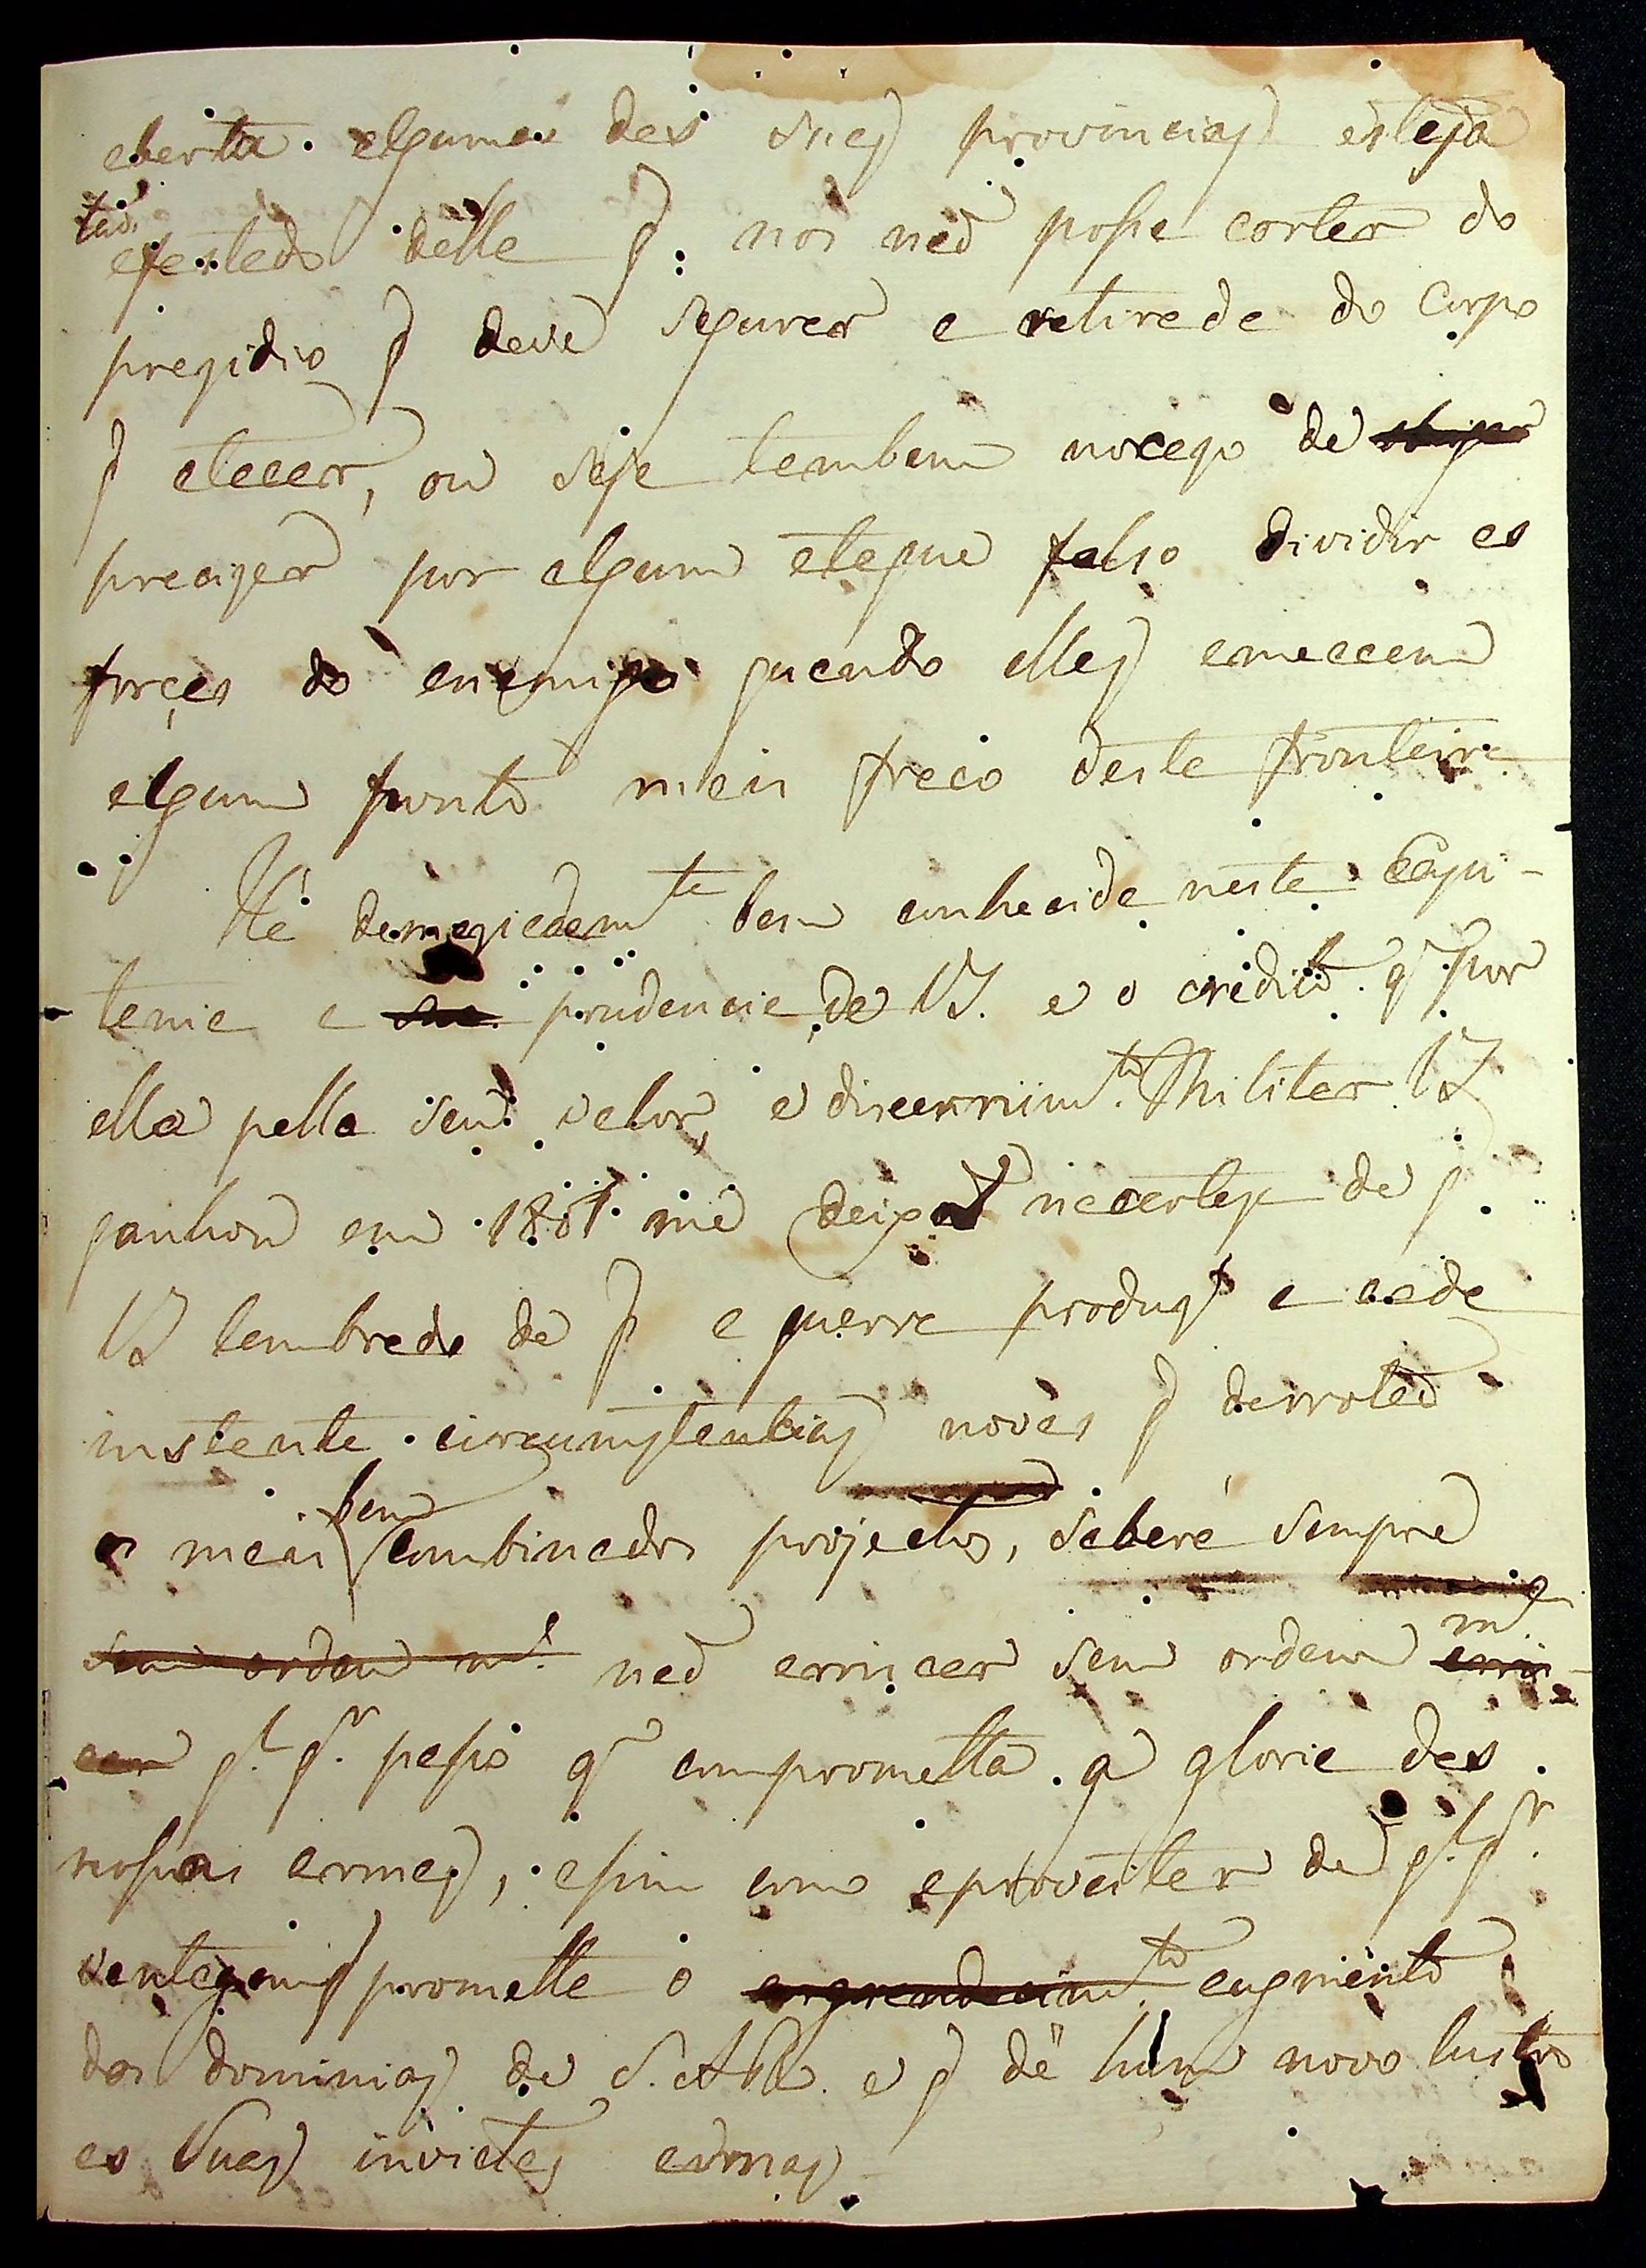 aberta alguma das suas provincias esteja
tao
afastada della q. nos naõ possa cortar do
pregidio q deve segurar a retirada do corpo
q atacar, ou seja tambem no cazo de
precizar por algum ataque falso dividir as
forças do enemigo quando elles ameacem
algum ponto mais fraco desta fronteira
He demaziadam.te bem conhecida nesta Capi-
tania a sua prudencia de VS. e o credito q. por
ella pella seu valor, e discernim.to Militar VS
ganhou em 1801 me deixaõ na certeza de q.
VS lembrado de q a guerra produz a cada
instante circumstancias novas q derrotaõ
os mais bem combinados projectos, saberá sempre
sem ordem m.a naõ arriscar sem ordem m.a arris-
car q.l q.r passo q. comprometta a gloria das
nossas armas, asim como aproveitar de q.l q.r
vantagem q prometta o engrandecim.to augmento
dos dominios de S. A. R. e q dê hum novo lustro
as Suas invictas armas